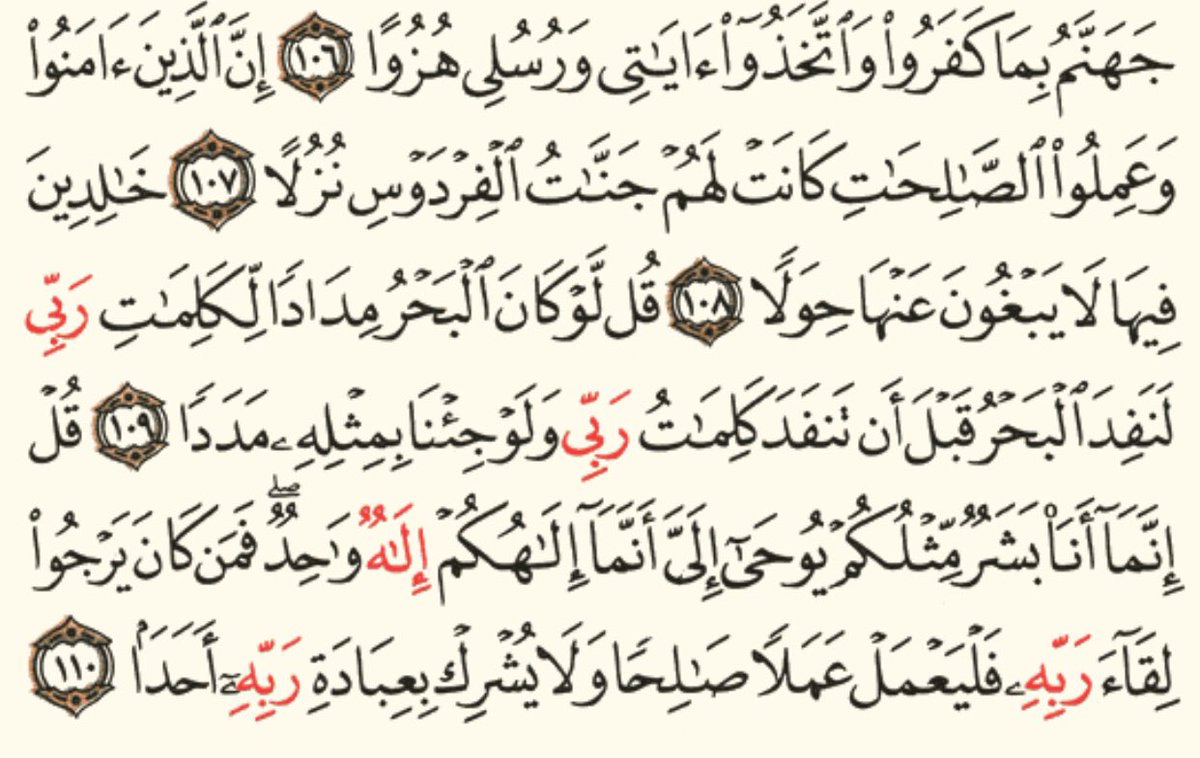 جَهَنَّمُ بِمَا كَفَرُوا۟ وَٱتَّخَذُوٓا۟ ءَايَـٰتِى وَرُسُلِى هُزُوًا ١٠٦ إِنَّ ٱلَّذِينَ ءَامَنُوا۟
وَعَمِلُوا۟ ٱلصَّـٰلِحَـٰتِ كَانَتْ لَهُمْ جَنَّـٰتُ ٱلْفِرْدَوْسِ نُزُلًا ١٠٧ خَـٰلِدِينَ
فِيهَا لَا يَبْغُونَ عَنْهَا حِوَلًا ١٠٨ قُل لَّوْ كَانَ ٱلْبَحْرُ مِدَادًا لِّكَلِمَـٰتِ رَبِّى
لَنَفِدَ ٱلْبَحْرُ قَبْلَ أَن تَنفَدَ كَلِمَـٰتُ رَبِّى وَلَوْ جِئْنَا بِمِثْلِهِۦ مَدَدًا ١٠٩ قُلْ
إِنَّمَآ أَنَا۠ بَشَرٌ مِّثْلُكُمْ يُوحَىٰٓ إِلَىَّ أَنَّمَآ إِلَـٰهُكُمْ إِلَـٰهٌ وَٰحِدٌ ۖ فَمَن كَانَ يَرْجُوا۟
لِقَآءَ رَبِّهِۦ فَلْيَعْمَلْ عَمَلًا صَـٰلِحًا وَلَا يُشْرِكْ بِعِبَادَةِ رَبِّهِۦٓ أَحَدًۢا ١١٠